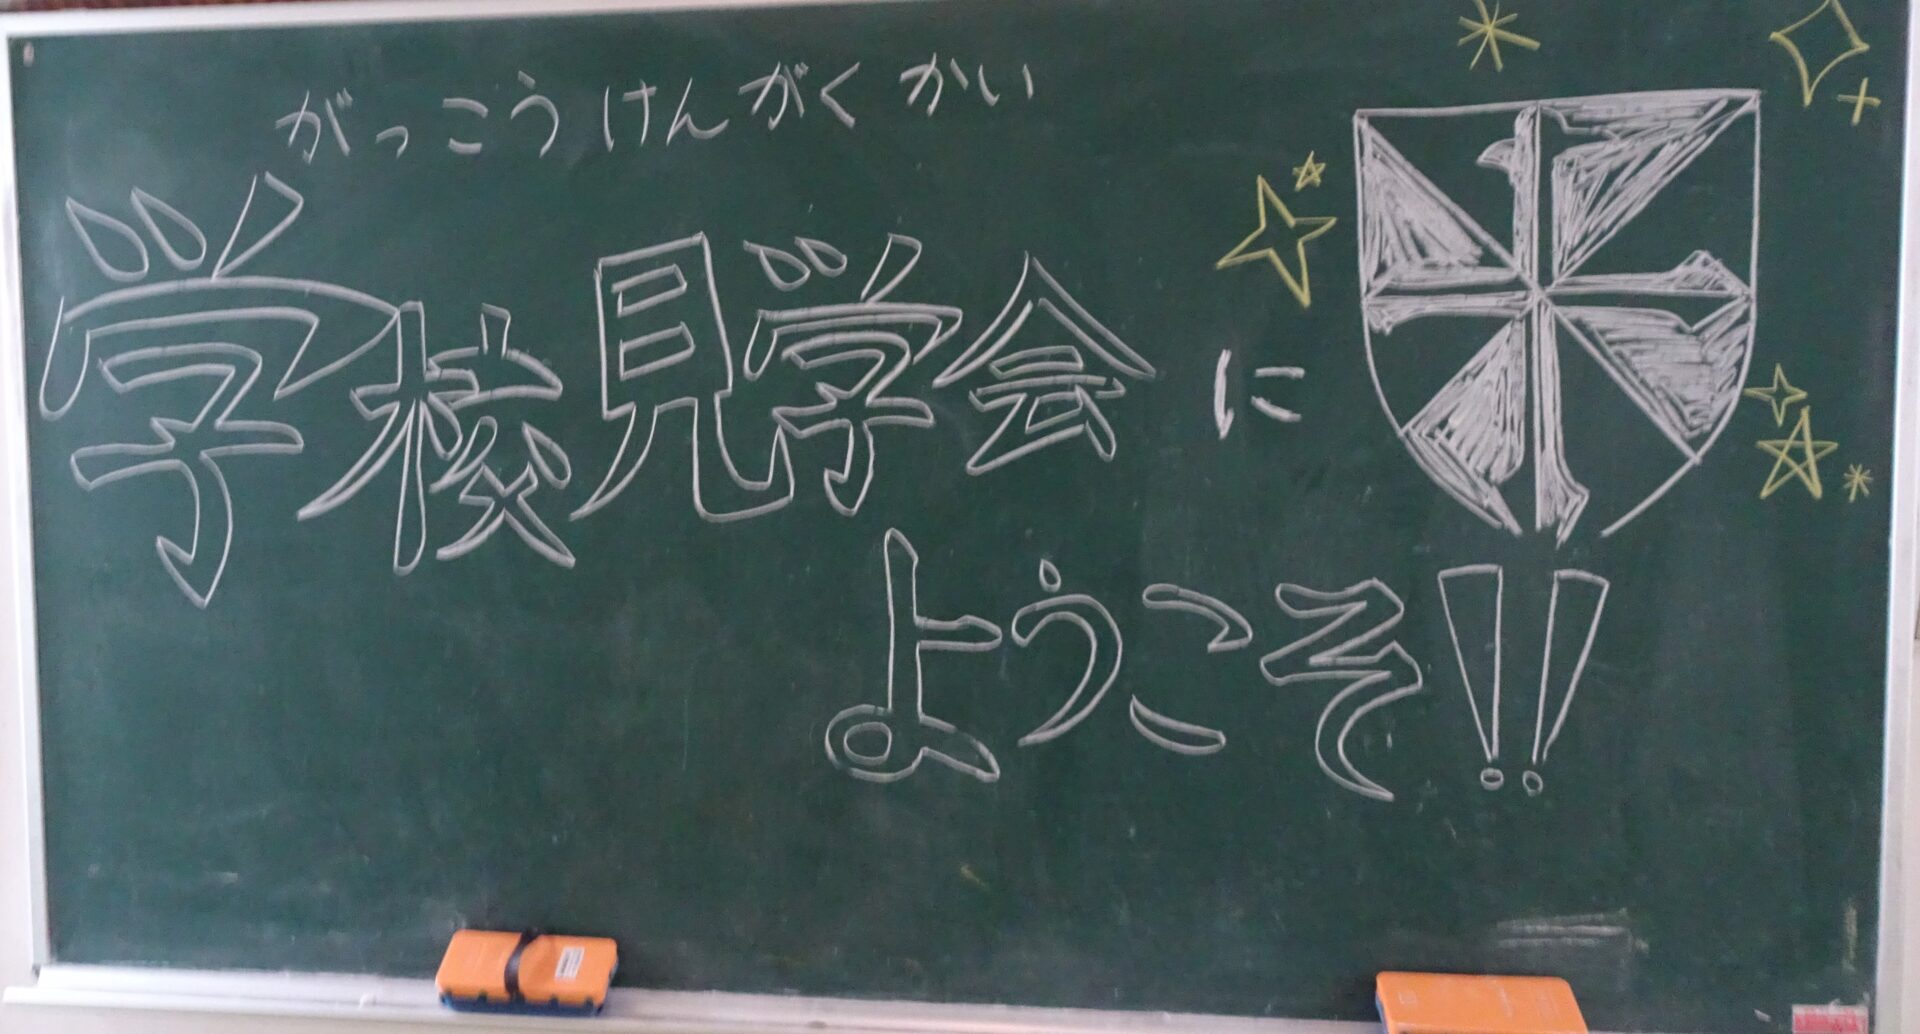 がっこうけんがくかい
学校見学会に
ようこそ!!